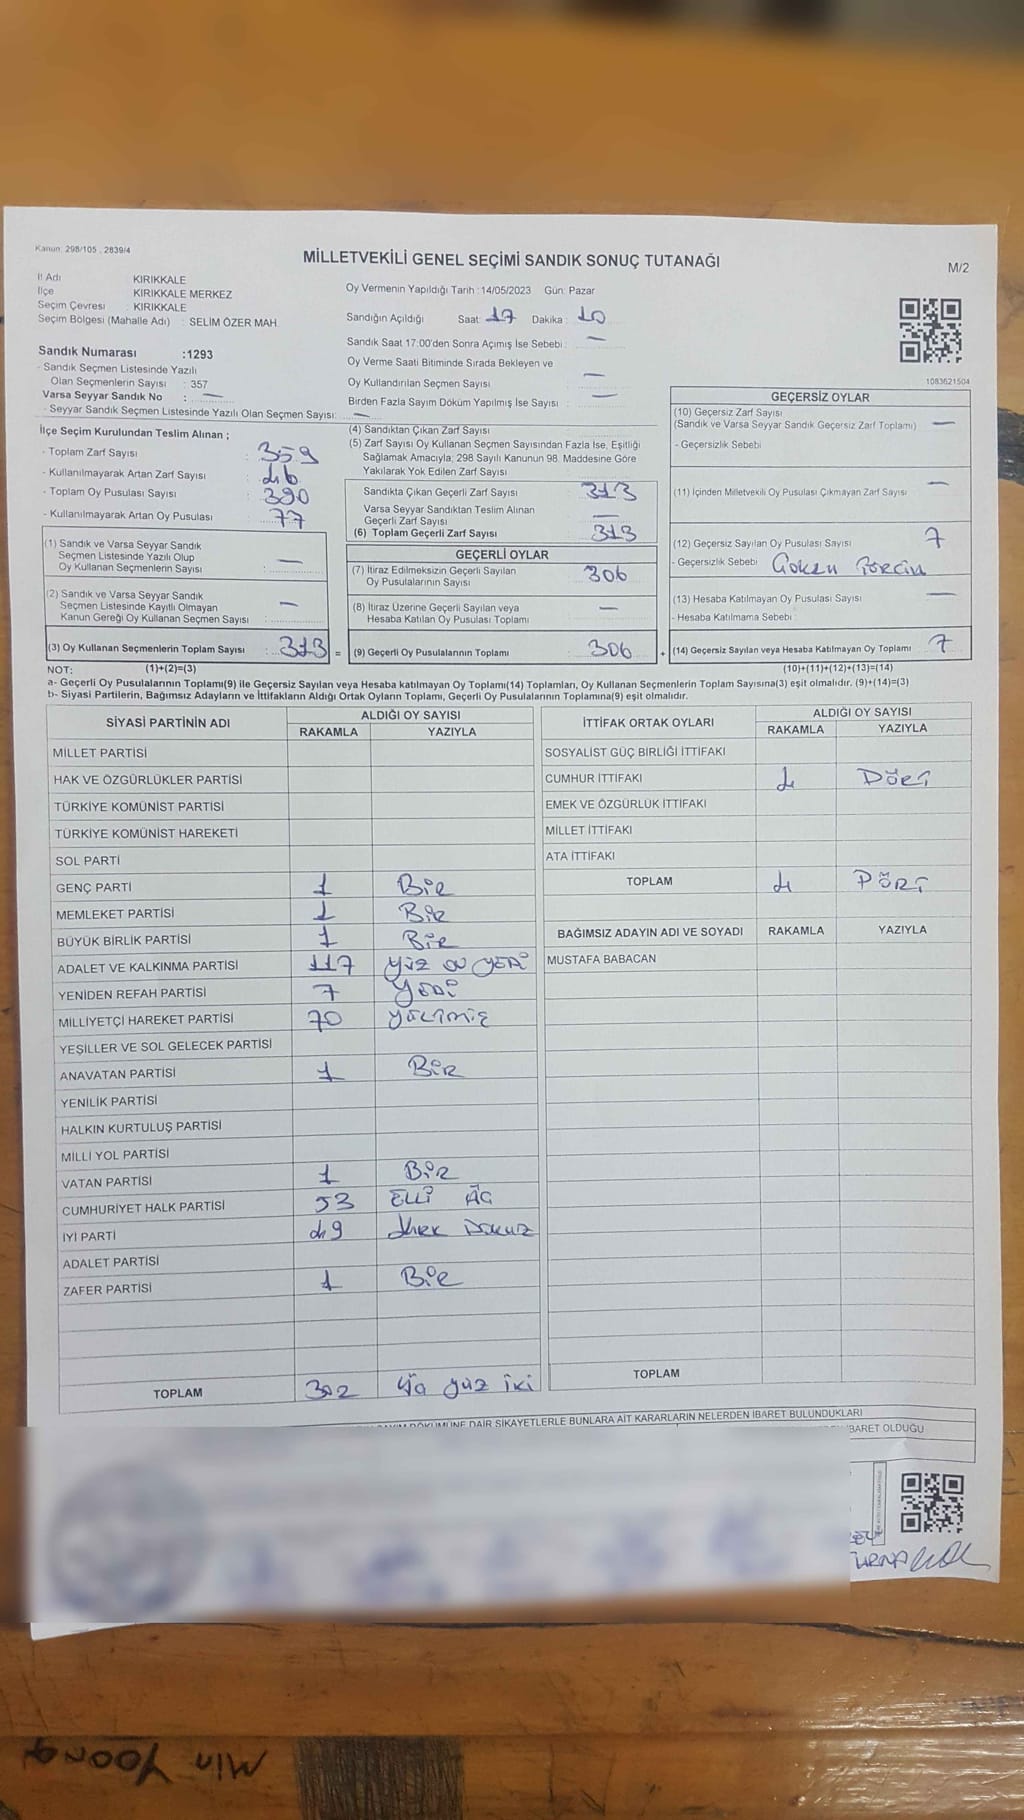 Kanun: 298/105 , 2839/4
MİLLETVEKİLİ GENEL SEÇİMİ SANDIK SONUÇ TUTANAĞI
M/2
İl Adı KIRIKKALE
İlçe KIRIKKALE MERKEZ
Seçim Çevresi : KIRIKKALE
Seçim Bölgesi (Mahalle Adı) : SELİM ÖZER MAH.
Oy Vermenin Yapıldığı Tarih :14/05/2023 Gün: Pazar
Sandığın Açıldığı Saat: 17 Dakika : 10
Sandık Saat 17:00'den Sonra Açımış İse Sebebi : —
Oy Verme Saati Bitiminde Sırada Bekleyen ve
Oy Kullandırılan Seçmen Sayısı —
Birden Fazla Sayım Döküm Yapılmış İse Sayısı : —
1083621504
Sandık Numarası :1293
- Sandık Seçmen Listesinde Yazılı
Olan Seçmenlerin Sayısı : 357
Varsa Seyyar Sandık No : —
- Seyyar Sandık Seçmen Listesinde Yazılı Olan Seçmen Sayısı: —
İlçe Seçim Kurulundan Teslim Alınan ;
- Toplam Zarf Sayısı : 359
- Kullanılmayarak Artan Zarf Sayısı : 46
- Toplam Oy Pusulası Sayısı : 390
- Kullanılmayarak Artan Oy Pusulası : 77
(1) Sandık ve Varsa Seyyar Sandık
Seçmen Listesinde Yazılı Olup
Oy Kullanan Seçmenlerin Sayısı : —
(2) Sandık ve Varsa Seyyar Sandık
Seçmen Listesinde Kayıtlı Olmayan
Kanun Gereği Oy Kullanan Seçmen Sayısı : —
(3) Oy Kullanan Seçmenlerin Toplam Sayısı : 313 =
(4) Sandıktan Çıkan Zarf Sayısı
(5) Zarf Sayısı Oy Kullanan Seçmen Sayısından Fazla İse, Eşitliği
Sağlamak Amacıyla; 298 Sayılı Kanunun 98. Maddesine Göre
Yakılarak Yok Edilen Zarf Sayısı
Sandıkta Çıkan Geçerli Zarf Sayısı 313
Varsa Seyyar Sandıktan Teslim Alınan
Geçerli Zarf Sayısı —
(6) Toplam Geçerli Zarf Sayısı 313
GEÇERLİ OYLAR
(7) İtiraz Edilmeksizin Geçerli Sayılan
Oy Pusulalarının Sayısı 306
(8) İtiraz Üzerine Geçerli Sayılan veya
Hesaba Katılan Oy Pusulası Toplamı —
(9) Geçerli Oy Pusulalarının Toplamı 306 +
GEÇERSİZ OYLAR
(10) Geçersiz Zarf Sayısı
(Sandık ve Varsa Seyyar Sandık Geçersiz Zarf Toplamı) —
- Geçersizlik Sebebi
(11) İçinden Milletvekili Oy Pusulası Çıkmayan Zarf Sayısı —
(12) Geçersiz Sayılan Oy Pusulası Sayısı 7
- Geçersizlik Sebebi
(13) Hesaba Katılmayan Oy Pusulası Sayısı —
- Hesaba Katılmama Sebebi :
(14) Geçersiz Sayılan veya Hesaba Katılmayan Oy Toplamı 7
NOT: (1)+(2)=(3) (10)+(11)+(12)+(13)=(14)
a- Geçerli Oy Pusulalarının Toplamı(9) ile Geçersiz Sayılan veya Hesaba katılmayan Oy Toplamı(14) Toplamları, Oy Kullanan Seçmenlerin Toplam Sayısına(3) eşit olmalıdır. (9)+(14)=(3)
b- Siyasi Partilerin, Bağımsız Adayların ve İttifakların Aldığı Ortak Oyların Toplamı, Geçerli Oy Pusulalarının Toplamına(9) eşit olmalıdır.
SİYASİ PARTİNİN ADI ALDIĞI OY SAYISI
RAKAMLA YAZIYLA
MİLLET PARTİSİ
HAK VE ÖZGÜRLÜKLER PARTİSİ
TÜRKİYE KOMÜNİST PARTİSİ
TÜRKİYE KOMÜNİST HAREKETİ
SOL PARTİ
GENÇ PARTİ 1 Bir
MEMLEKET PARTİSİ 1 Bir
BÜYÜK BİRLİK PARTİSİ 1 Bir
ADALET VE KALKINMA PARTİSİ 117 yüz on yedi
YENİDEN REFAH PARTİSİ 7 yedi
MİLLİYETÇİ HAREKET PARTİSİ 70 yetmiş
YEŞİLLER VE SOL GELECEK PARTİSİ
ANAVATAN PARTİSİ 1 Bir
YENİLİK PARTİSİ
HALKIN KURTULUŞ PARTİSİ
MİLLİ YOL PARTİSİ
VATAN PARTİSİ 1 Bir
CUMHURİYET HALK PARTİSİ 53 Elli üç
İYİ PARTİ 49 kırk Dokuz
ADALET PARTİSİ
ZAFER PARTİSİ 1 Bir
TOPLAM 302 üç yüz iki
İTTİFAK ORTAK OYLARI ALDIĞI OY SAYISI
RAKAMLA YAZIYLA
SOSYALİST GÜÇ BİRLİĞİ İTTİFAKI
CUMHUR İTTİFAKI 4 Dört
EMEK VE ÖZGÜRLÜK İTTİFAKI
MİLLET İTTİFAKI
ATA İTTİFAKI
TOPLAM 4 Dört
BAĞIMSIZ ADAYIN ADI VE SOYADI RAKAMLA YAZIYLA
MUSTAFA BABACAN
TOPLAM
DÖKÜMÜNE DAİR ŞİKAYETLERLE BUNLARA AİT KARARLARIN NELERDEN İBARET BULUNDUKLARI
İBARET OLDUĞU
Min Yoong